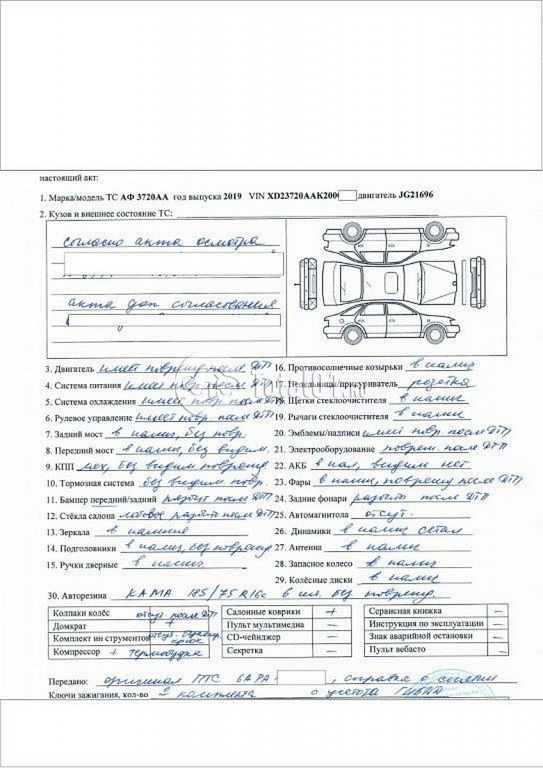 настоящий акт:
1. Марка/модель ТС АФ 3720АА год выпуска 2019 VIN XD23720AAK200 двигатель JG21696
2. Кузов и внешнее состояние ТС:
согласно акта осмотра
акта доп согласования
3. Двигатель имеет поврежд после ДТП 16. Противосолнечные козырьки в налич
4. Система питания имеет повр после ДТП 17. Пепельницы/прикуриватель розетка
5. Система охлаждения имеет повр после ДТП 18. Щетки стеклоочистителя в налич
6. Рулевое управление имеет повр. после ДТП 19. Рычаги стеклоочистителя в налич
7. Задний мост в налич, без повр. 20. Эмблемы/надписи имеет повр. после ДТП
8. Передний мост в налич, без видим. 21. Электрооборудование поврежд. после ДТП
9. КПП мех, без видим поврежд 22. АКБ в нал, видим нет
10. Тормозная система без видим повр. 23. Фары в налич, поврежд после ДТП
11. Бампер передний/задний после ДТП 24. Задние фонари разбито после ДТП
12. Стёкла салона лобовое разбито после ДТП 25. Автомагнитола отсут.
13. Зеркала в наличии 26. Динамики в налич
14. Подголовники в налич, без поврежд 27. Антенна в налич
15. Ручки дверные в налич 28. Запасное колесо в налич
29. Колёсные диски в налич
30. Авторезина КАМА 185/75 R16c в без поврежд.
Колпаки колёс отсут. после ДТП Салонные коврики + Сервисная книжка —
Домкрат + Пульт мультимедиа — Инструкция по эксплуатации —
Комплект инструментов отсут. крюк CD-чейнджер — Знак аварийной остановки —
Компрессор + термобудка Секретка — Пульт вебасто —
Передано: оригинал ПТС , справка о снятии
Ключи зажигания, кол-во 2 комплекта с учета ГИБДД